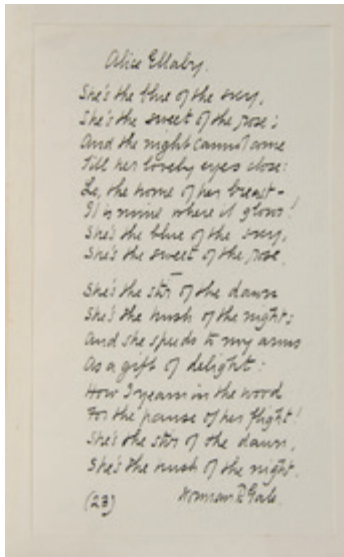 Alice Ellaby.
She's the blue of the sky,
She's the sweet of the rose;
And the night cannot come
Till her lovely eyes close:
Lo, the home of her breast –
It is mine where it glows!
She's the blue of the sky,
She's the sweet of the rose.
She's the star of the dawn
She's the hush of the night;
And she speeds to my arms
As a gift of delight:
How I yearn in the wood
For the pause of her flight!
She's the star of the dawn,
She's the hush of the night.
(28) Norman R. Gale.